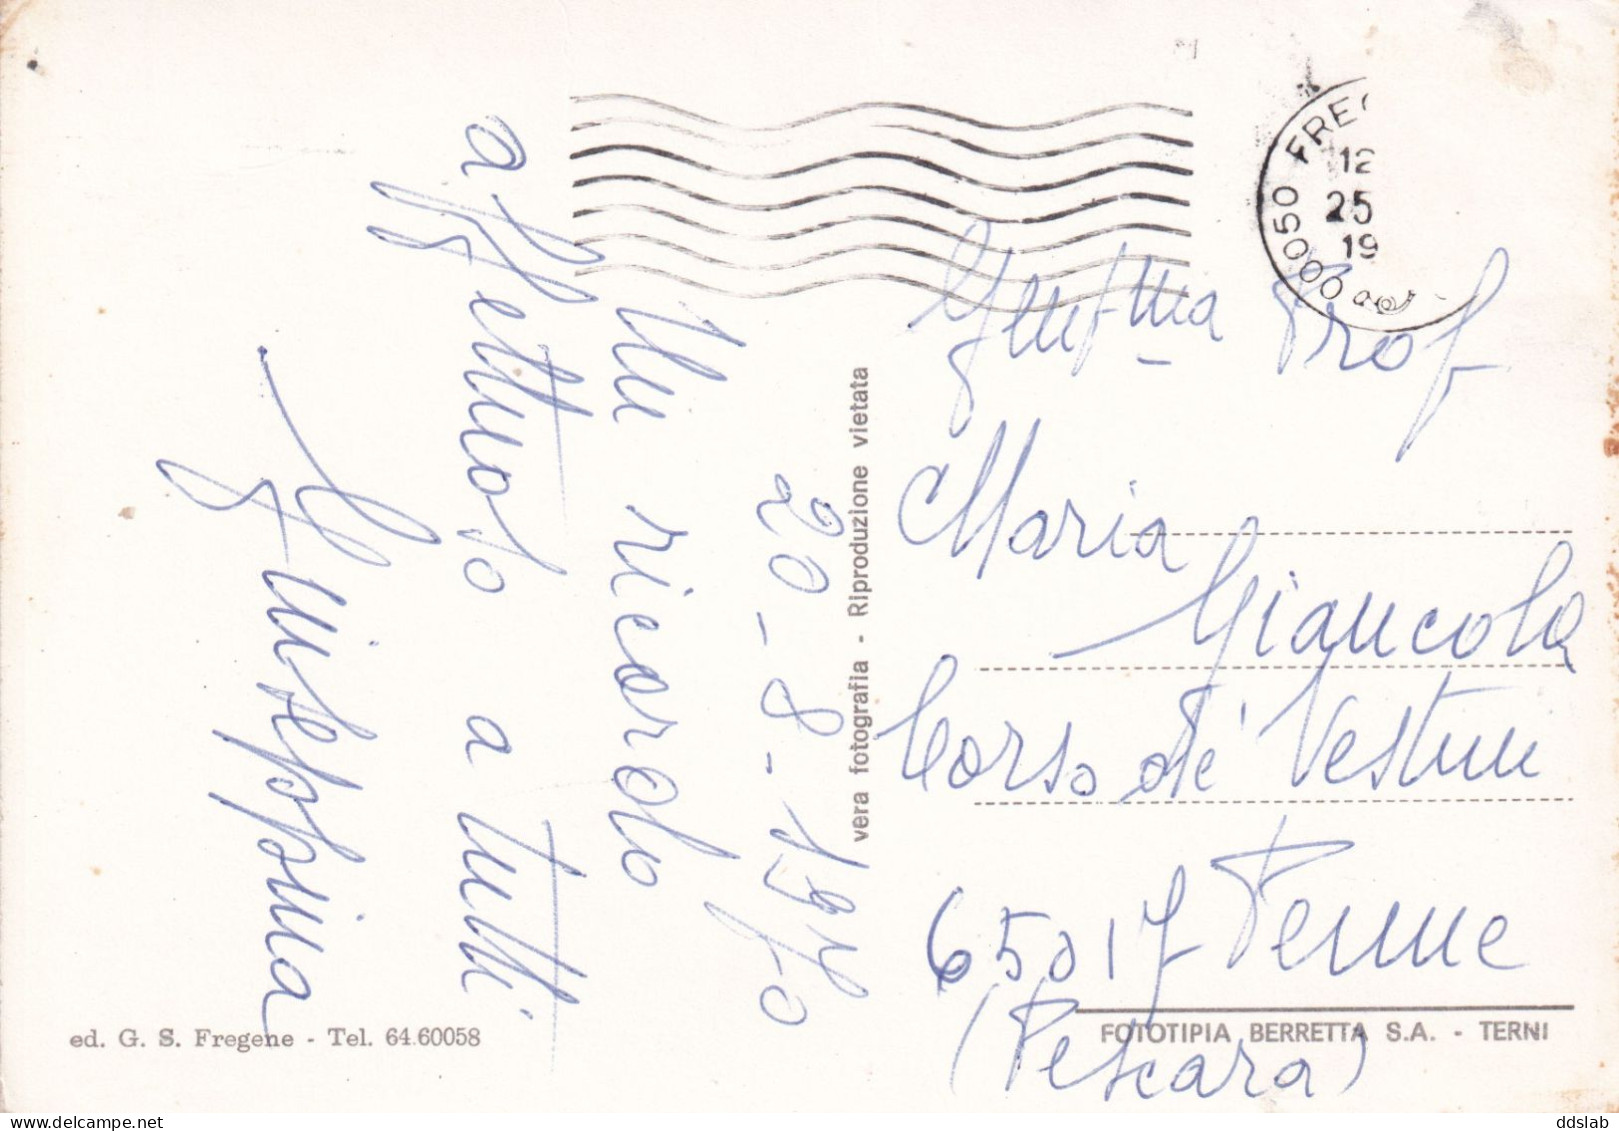 20-8-1970
Un ricordo
affettuoso a tutti
Giuseppina
vera fotografia - Riproduzione vietata
00050 FREG
12
25
19
Gent.ma Prof
Maria
Giancola
Corso dé Vestini
65017 Penne
(Pescara)
ed. G. S. Fregene - Tel. 64.60058
FOTOTIPIA BERRETTA S.A. - TERNI
ddslab